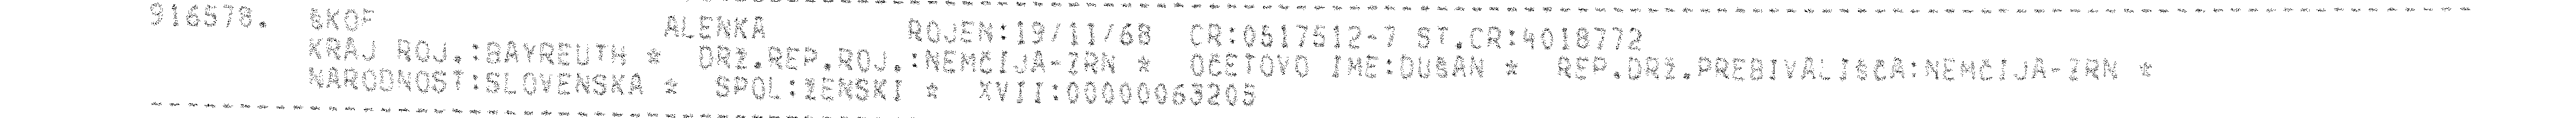 916578. ŠKOF ALENKA ROJEN:19/11/68 CR:0517512-7 ST.CR:4018772
KRAJ ROJ.:BAYREUTH * DRŽ.REP.ROJ.:NEMČIJA-ZRN * OČETOVO IME:DUŠAN * REP.DRŽ.PREBIVALIŠČA:NEMČIJA-ZRN *
NARODNOST:SLOVENSKA * SPOL:ŽENSKI * XVII:00000063205